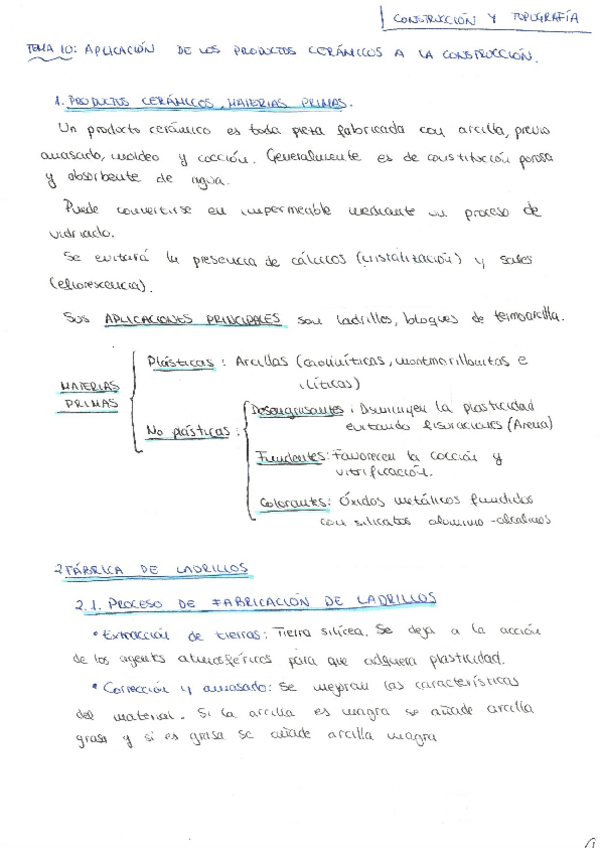 CONSTRUCCIÓN Y TOPOGRAFÍA
TEMA 10: APLICACIÓN DE LOS PRODUCTOS CERÁMICOS A LA CONSTRUCCIÓN.
1. PRODUCTOS CERÁMICOS. MATERIAS PRIMAS.
Un producto cerámico es toda pieza fabricada con arcilla, previo
amasado, moldeo y cocción. Generalmente es de constitución porosa
y absorbente de agua.
Puede convertirse en impermeable mediante un proceso de
vidriado.
Se evitará la presencia de cálcicos (cristalización) y sales
(eflorescencia).
Sus APLICACIONES PRINCIPALES son ladrillos, bloques de termoarcilla.
MATERIAS PRIMAS
Plásticas: Arcillas (caoliníticas, montmorillonitas e
ilíticas)
No plásticas:
Desengrasantes: Disminuyen la plasticidad
evitando fisuraciones (Arena)
Fundentes: Favorecen la cocción y
vitrificación.
Colorantes: Óxidos metálicos fundidos
con silicatos aluminio-alcalinos
2 FÁBRICA DE LADRILLOS
2.1. PROCESO DE FABRICACIÓN DE LADRILLOS
• Extracción de tierras: Tierra silícea. Se deja a la acción
de los agents atmosféricos para que adquiera plasticidad.
• Corrección y amasado: Se mejoran las características
del material. Si la arcilla es magra se añade arcilla
grasa y si es grasa se añade arcilla magra